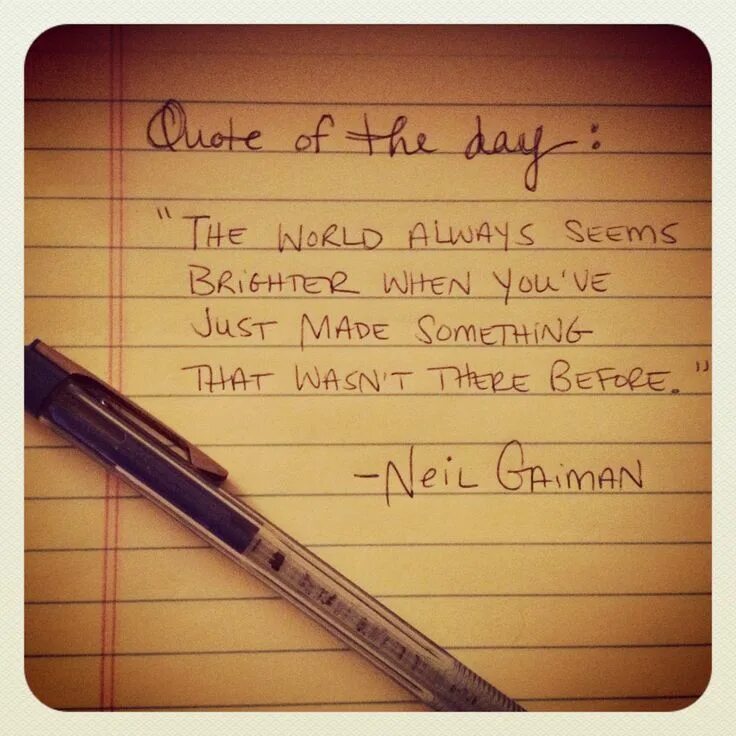 Quote of the day:
"THE WORLD ALWAYS SEEMS
BRIGHTER WHEN YOU'VE
JUST MADE SOMETHING
THAT WASN'T THERE BEFORE."
-NEIL GAIMAN